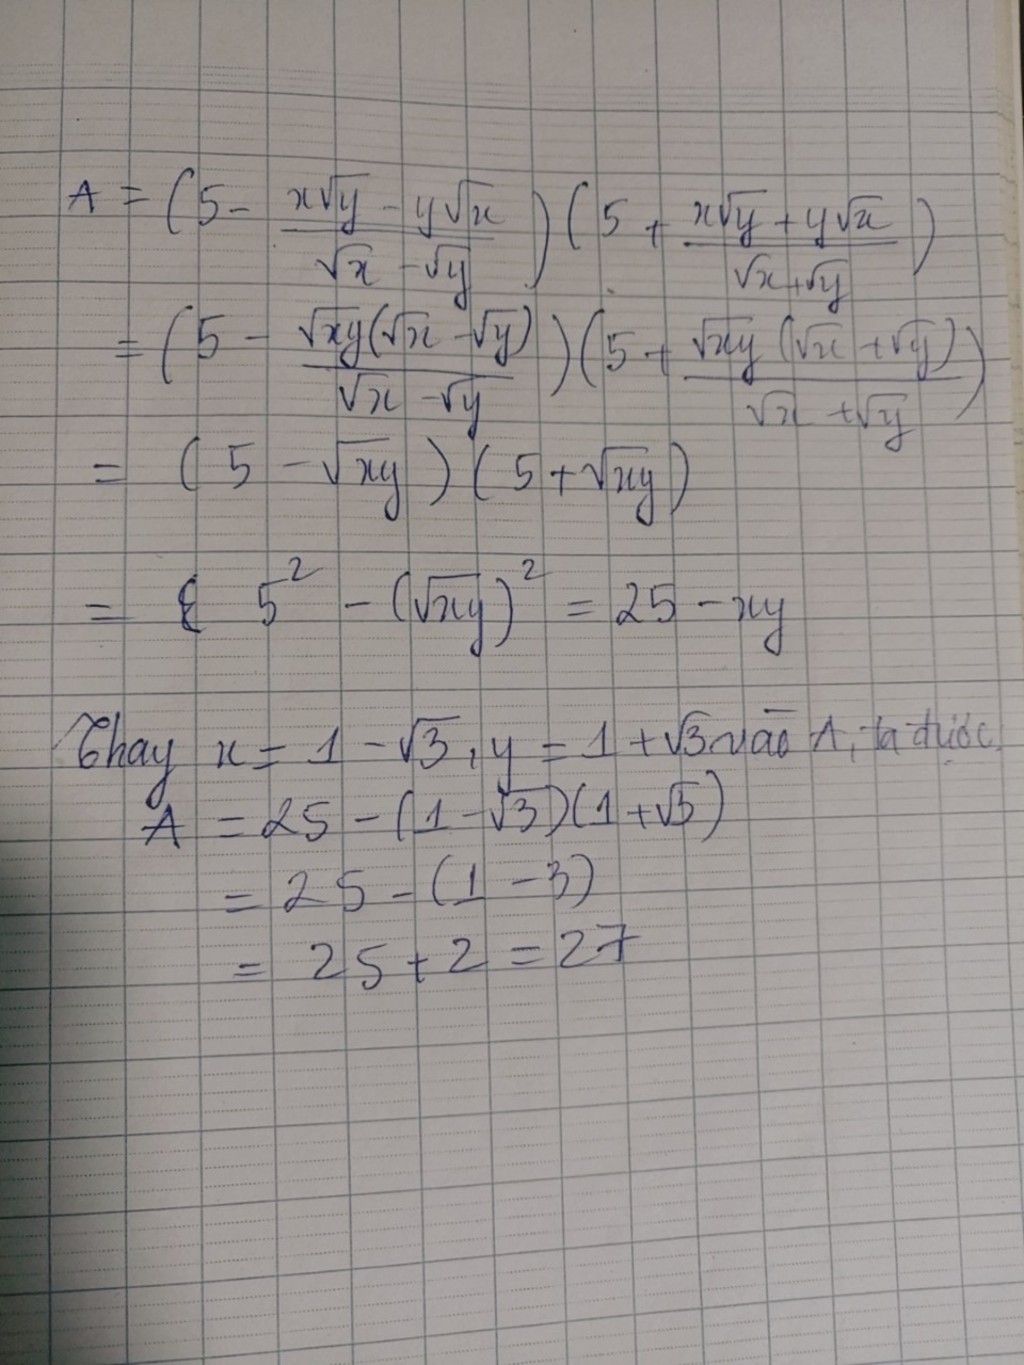 A = (5 - \frac{x\sqrt{y} - y\sqrt{x}}{\sqrt{x} - \sqrt{y}})(5 + \frac{x\sqrt{y} + y\sqrt{x}}{\sqrt{x} + \sqrt{y}})
= (5 - \frac{\sqrt{xy}(\sqrt{x} - \sqrt{y})}{\sqrt{x} - \sqrt{y}})(5 + \frac{\sqrt{xy}(\sqrt{x} + \sqrt{y})}{\sqrt{x} + \sqrt{y}})
= (5 - \sqrt{xy})(5 + \sqrt{xy})
= 5^2 - (\sqrt{xy})^2 = 25 - xy
Thay x = 1 - \sqrt{3}, y = 1 + \sqrt{3} vào A, ta được
A = 25 - (1 - \sqrt{3})(1 + \sqrt{3})
= 25 - (1 - 3)
= 25 + 2 = 27